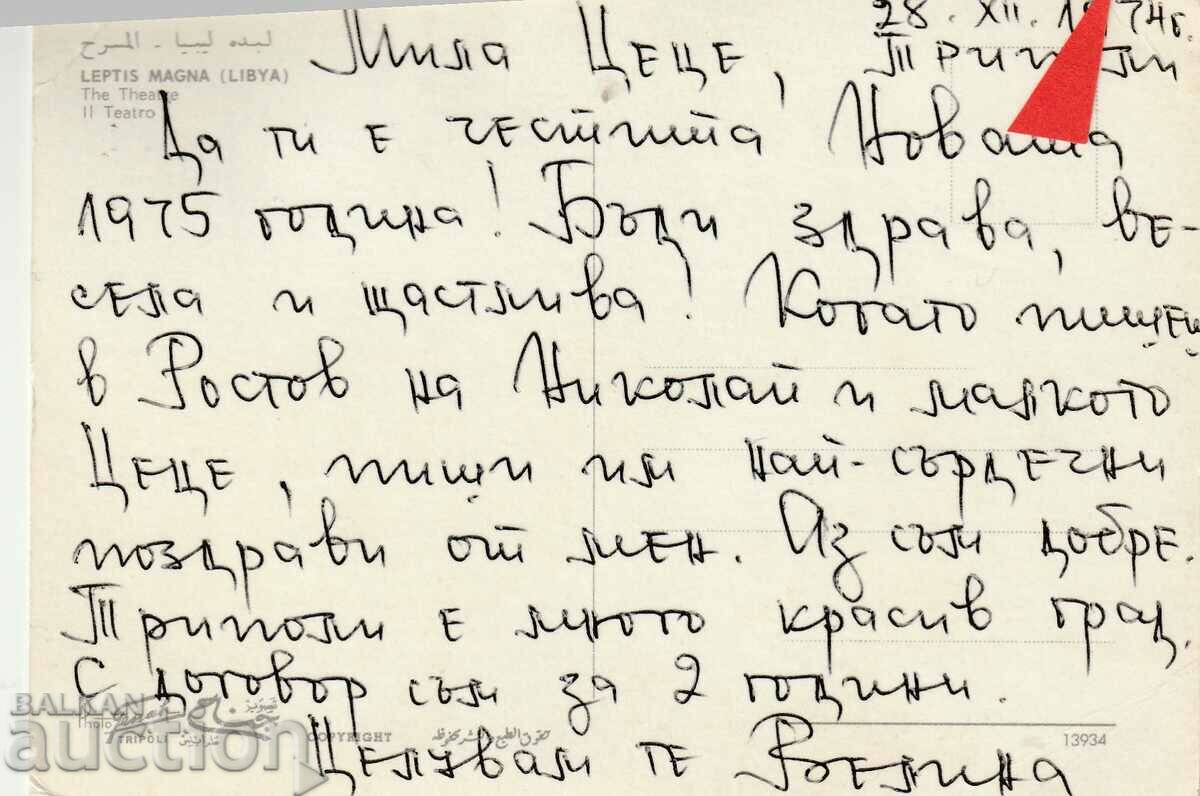 28. XII. 1974г.
لبده ليبيا - المسرح
LEPTIS MAGNA (LIBYA)
The Theatre
Il Teatro
Мила Цеце, Триполи
Да ти е честита Новата
1975 година! Бъди здрава, ве-
села и щастлива! Когато пишеш
в Ростов на Николай и малкото
Цеце, пиши им най-сърдечни
поздрави от мен. Аз съм добре.
Триполи е много красив град.
С договор съм за 2 години.
Целувам те Велина
Photo
TRIPOLI
COPYRIGHT
حقوق الطبع والنشر محفوظه
13934
BALKAN
auction